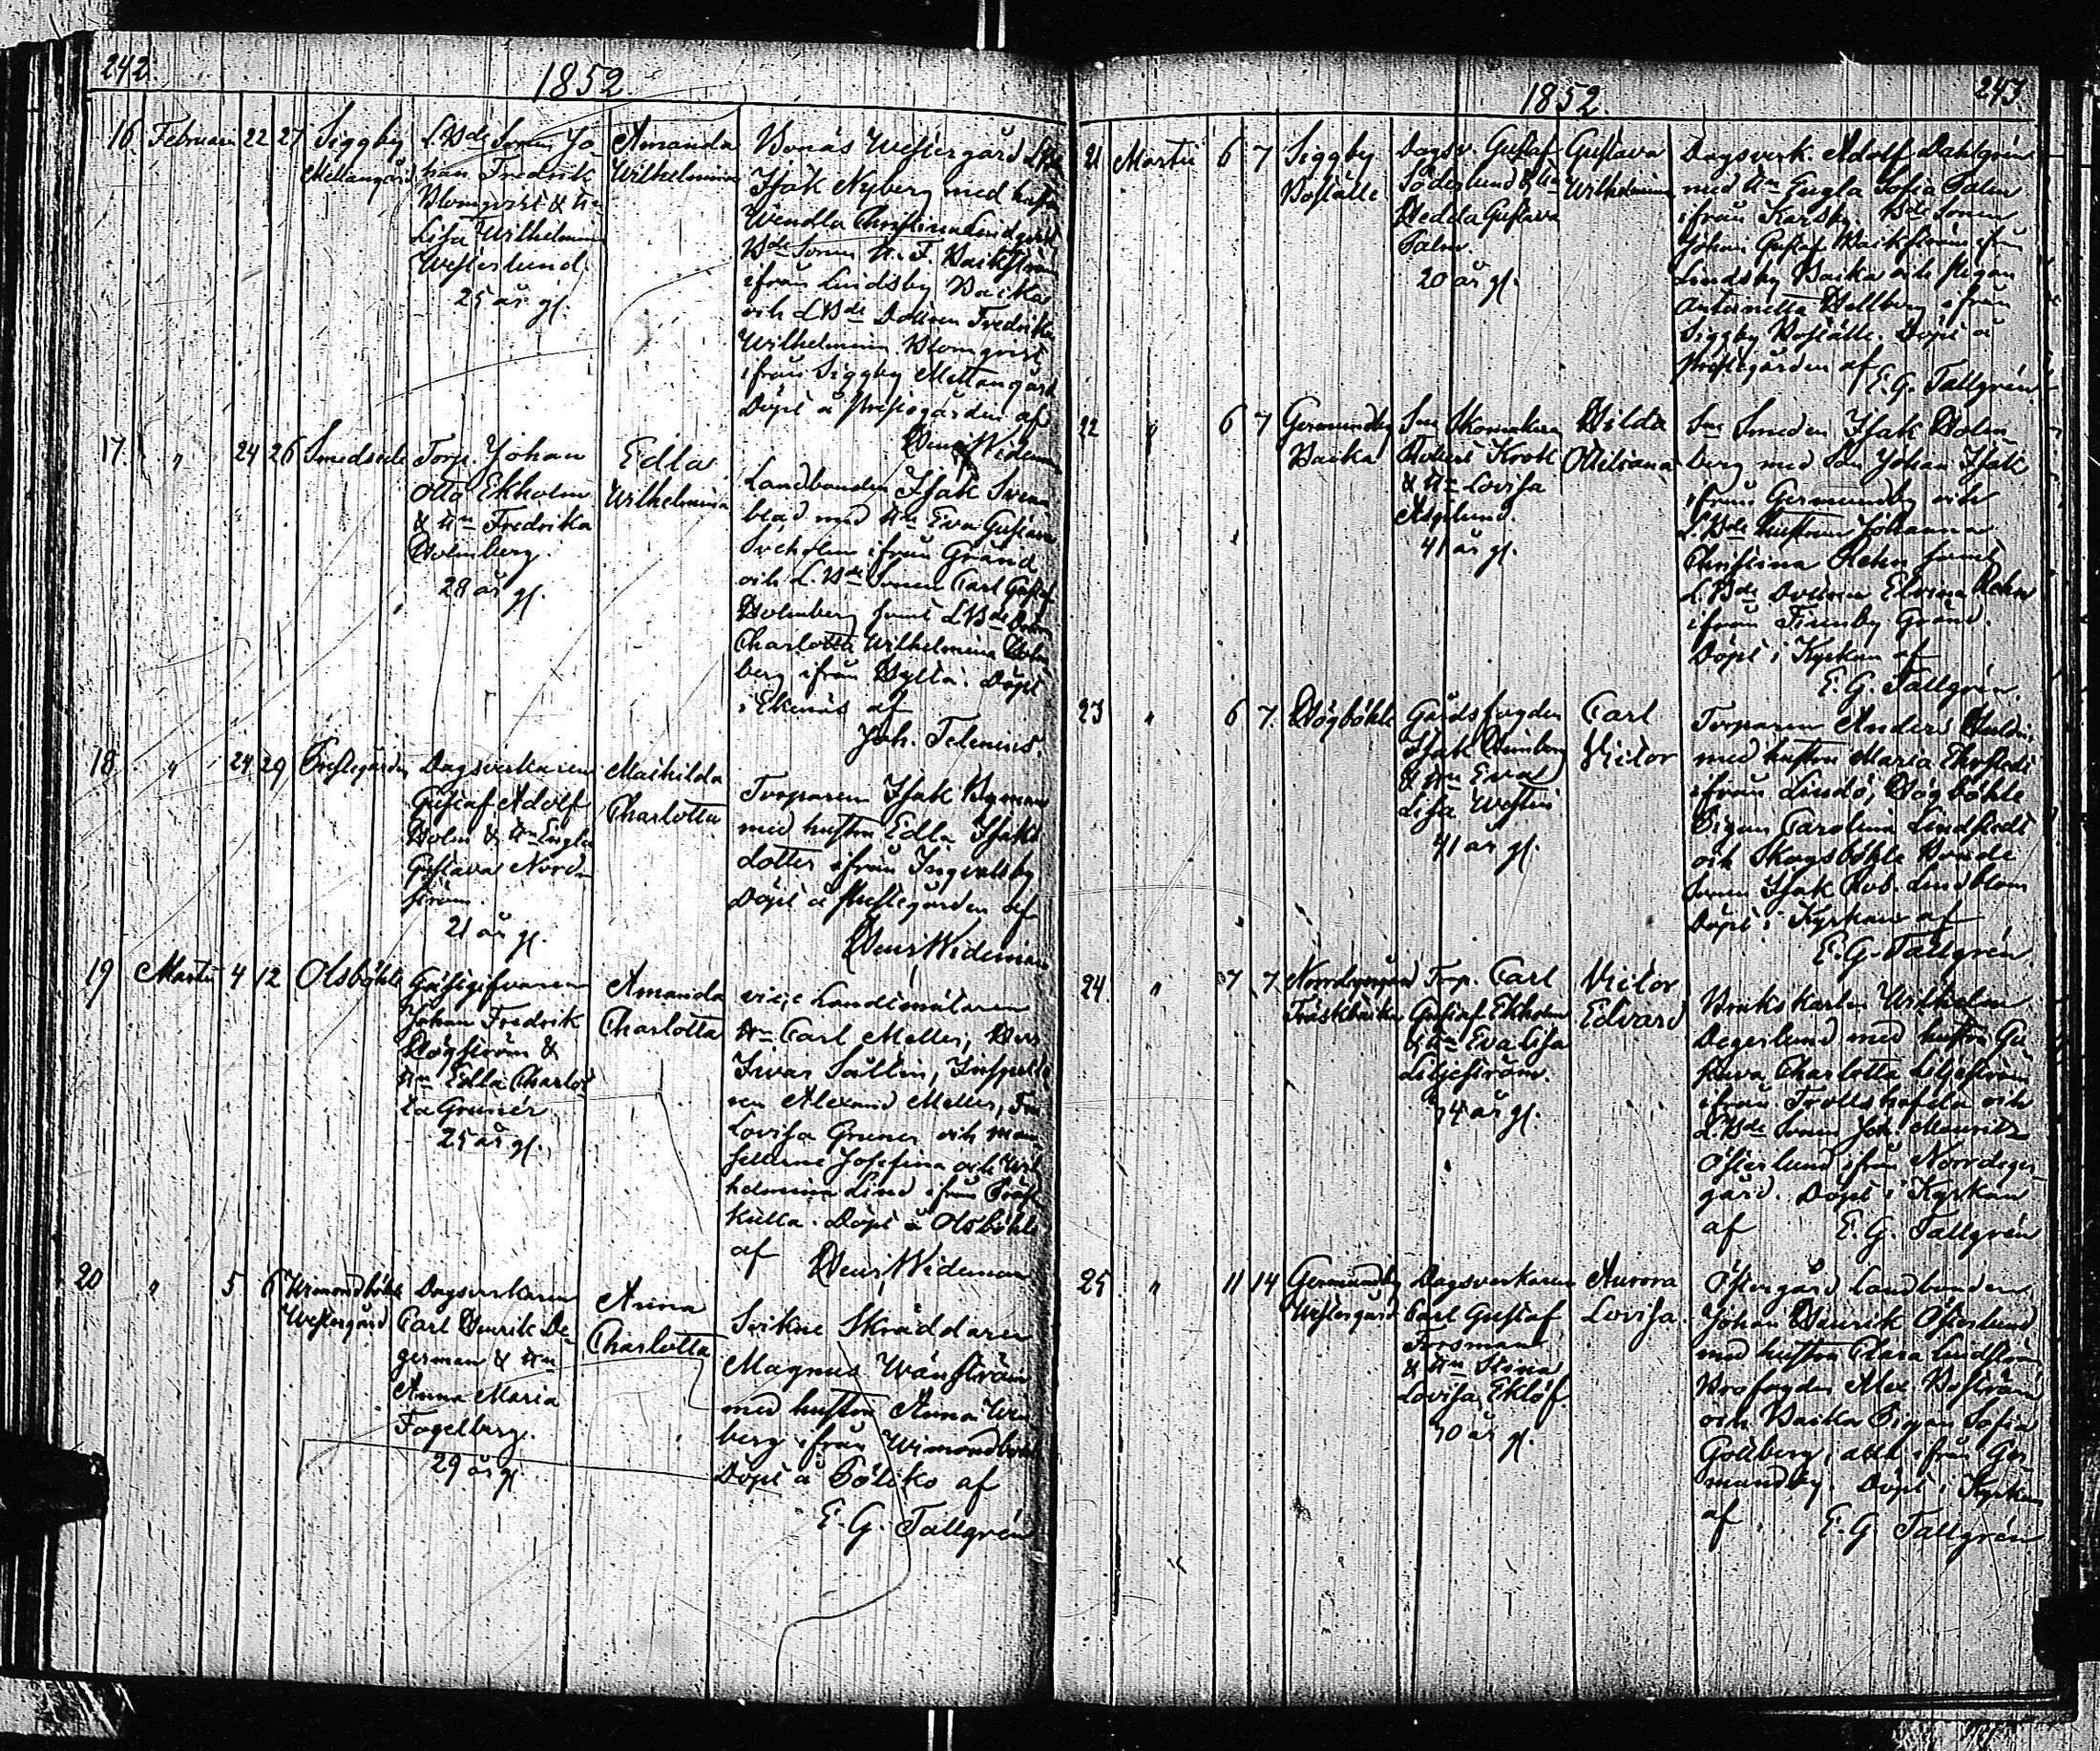 242.
1852.
16. Februari 22 27 Siggby Mellangård
L.Bde Sonen Jo-
han Fredrik
Blomqvist & Hu
Lisa Wilhelmina
Westerlund.
25 år gl.
Amanda
Wilhelmina
Bonäs Westergård
Isak Nyberg med hustru
Wendla Christina Lindqvist
Bde Sonen
ifrån Lindsby Backa
och LBde Dottren Fredrika
Wilhelmina Blomqvist
ifrån Siggby Mellangård
Döpt å Prestegården af
Wideman
17. " 24 26 Smedsede
Torp. Johan
Otto Ekholm
& Hn Fredrika
Holmberg.
28 år gl.
Edla
Wilhelmina
Landbonden Isak Svens
blad med Hu Eva Gustava
ifrån Gränd
och L.Bde Sonen Carl Gustaf
Holmberg samt LBde
Charlotta Wilhelmina Holm
berg ifrån Hylta. Döpt
i Ekenäs af
Joh. Telenius.
18. " 24 29 Prestegården
Dagsverkaren
Gustaf Adolf
Holm & Hn Engla
Gustava Nord-
ström.
21 år gl.
Mathilda
Charlotta
Torparen Isak Nyman
med hustru Edla Isaks
dotter ifrån Ingvalsby
Döpt å Prestegården af
Wideman
19 Martii 4 12 Olsböhle
Gästgifvaren
Johan Fredrik
Högström &
Hn Edla Charlot
ta Grunér.
25 år gl.
Amanda
Charlotta
vice Landtmätaren
Hn Carl Meller, Herr
Ivar Sallin, Inspekto
ren Alexand Meller, Fru
Lovisa Gruner och Mam
sellerne Josefina och Wil
helmina Lind ifrån Präst
kulla. Döpt å Olsböhle
af Wideman
20 " 5 6 Wimondböhle Westergård
Dagsverkaren
Carl Henrik De-
german & Hn
Anna Maria
Fagelberg.
29 år gl.
Anna
Charlotta
Sockne Skräddaren
Magnus Wänström
med hustru Anna
berg ifrån Wimondböhle
Döpt å af
E. G. Tallgrén
1852.
243.
21 Martii 6 7 Siggby Boställe
Dagsv. Gustaf
Söderlund & Hn
Hedda Gustava
Palm.
20 år gl.
Gustava
Wilhelmina
Dagsverk. Adolf Dahlgrén
med Hn Engla Sofia Palm
ifrån Karsby. Bde Sonen
Johan Gustaf Backström ifrån
Lindsby Backa och Pigan
Antonetta Hellberg ifrån
Siggby Boställe. Döpt å
Prestegården af
E. G. Tallgrén
22 " 6 7 Germundby Backa
Sne Skomakaren
Robert Krook
& Hn Lovisa
Asplund.
41 år gl.
Hilda
Otiliana
Sne Smeden Isak Holm
berg med Son Johan Isak
ifrån Germundby och
L.Bde hustrun Johanna
Christina Rehn samt
L.Bde Dottren Elvira Rehn
ifrån Finnby Gränd.
Döpt i Kyrkan af
E. G. Tallgrén.
23 " 6 7. Högböhle
Gårdsfogden
Isak
& Hn Eva
Lisa
41 år gl.
Carl
Victor
Torparen Anders
med hustru Maria Ekstedt
ifrån Lindö, Högböhle
Pigan Carolina Lindstedt
och Skogsböhle Bonde
Sonen Isak Rob. Lindblom
Döpt i Kyrkan af
E. G. Tallgrén.
24. " 7 7. Norrdegergård Träskbacka
Torp. Carl
Gustaf Ekholm
& Hn Eva Lisa
Liljeström.
år gl.
Victor
Edvard
Brukskarlen Wilhelm
Degerlund med hustru Gu
stava Charlotta Liljeström
ifrån Trollshofda och
L.Bde Sonen Joh. Mauritz
Österlund ifrån Norrdeger
gård. Döpt i Kyrkan
af E. G. Tallgrén
25 " 11 14 Germundby Westergård
Dagsverkaren
Carl Gustaf
Forsman
& Hn Stina
Lovisa Eklöf.
år gl.
Aurora
Lovisa.
Östergård Landbonden
Johan Henrik Österlund
med hustru Clara Lindström
Brofogden Alex. Boström
och Backa Pigan Sofia
Gottberg, alla ifrån Ger
mundby. Döpt i Kyrkan
af E. G. Tallgrén